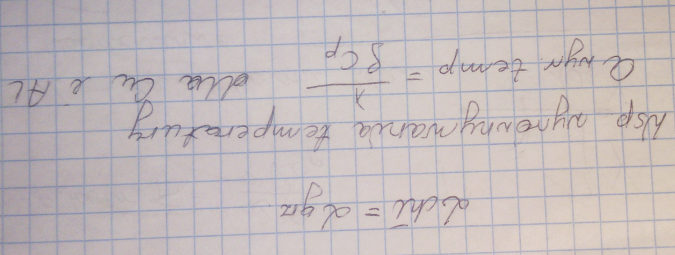 αchł = αgrz
Wsp wyrównywania temperatury
a wyr temp = λ / ρ Cp dla Cu i Al